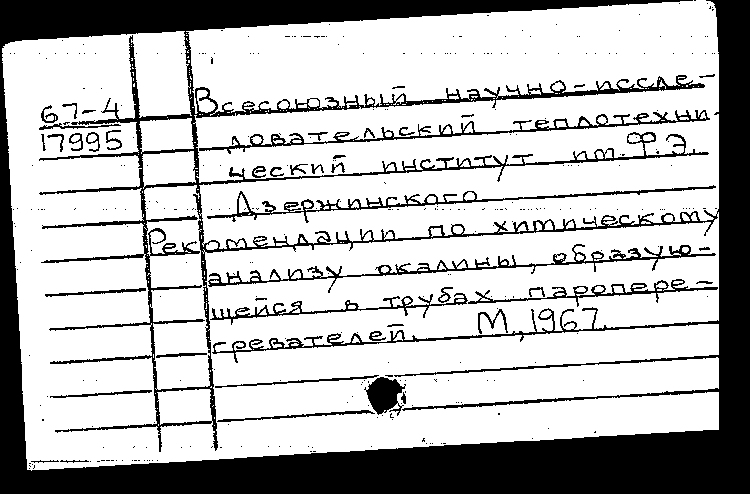 67-4
17995
Всесоюзный научно-иссле-
довательский теплотехни-
ческий институт им. Ф.Э.
Дзержинского
Рекомендации по химическому
анализу окалины, образую-
щейся в трубах паропере-
гревателей. М., 1967.